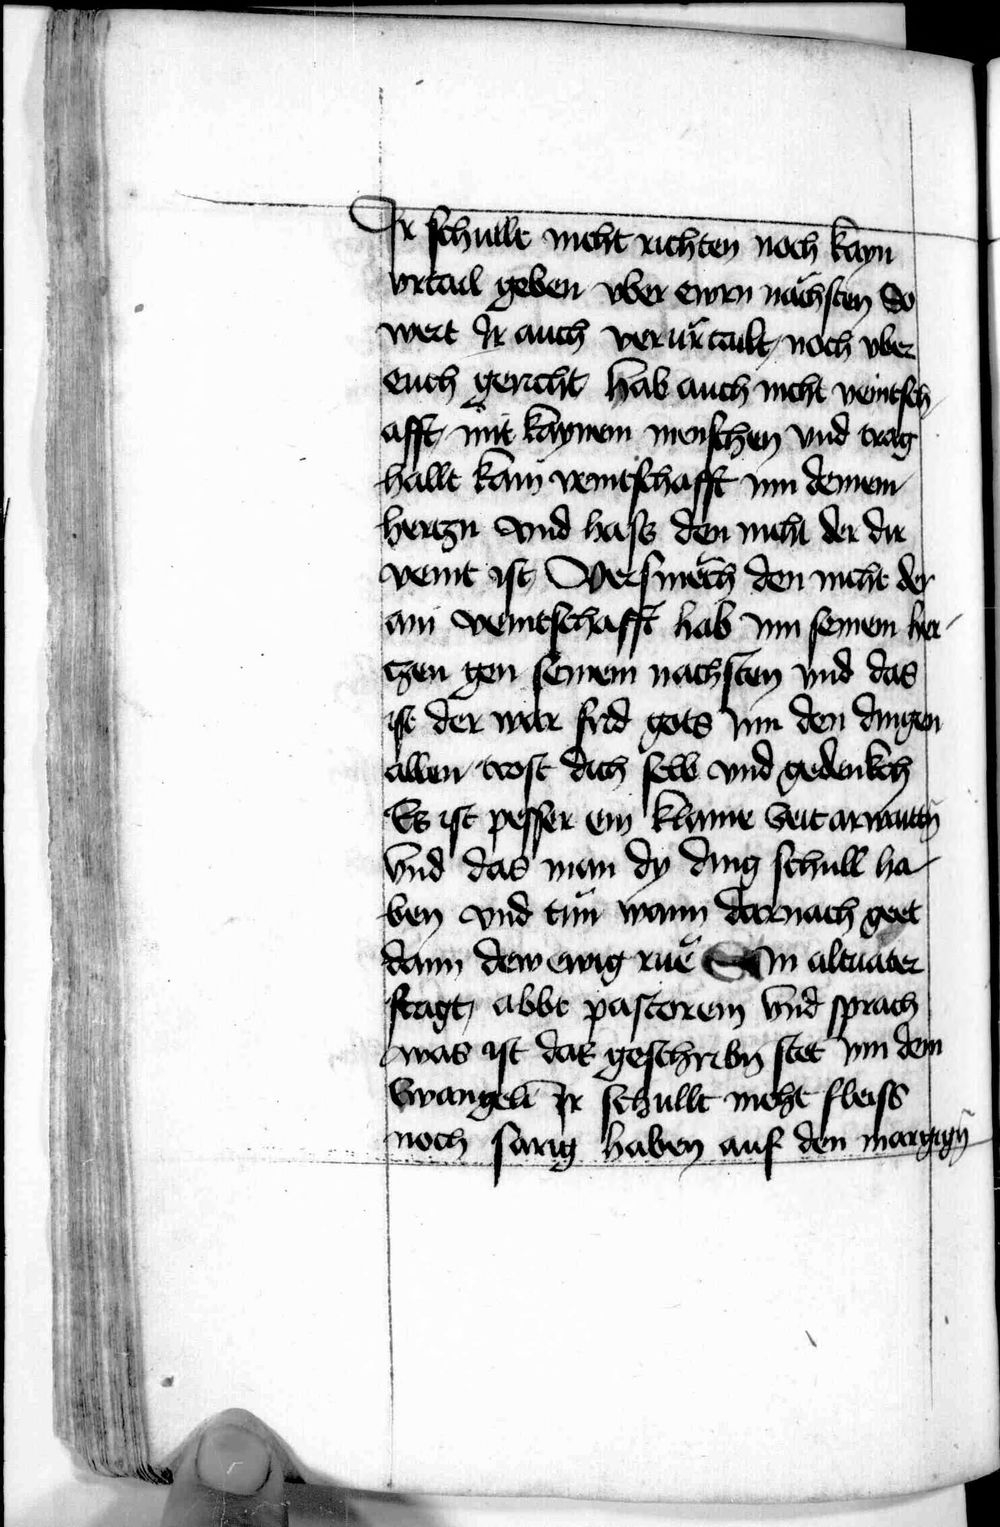 Ir schullt nicht richten noch kayn
vrtail geben vber ewrn nächsten So
wert ir auch verürtailt noch vber
euch gericht hab auch nicht veintsch
afft mit kaynem menschen vnd trag
hallt kain veintschafft inn deinem
hertzn vnd hass den nicht der dir
veint ist Versmëch den nicht der
ain veintschafft hab inn seinem her
tzen gen seinem nachsten vnd das
ist der war frid gots inn den dingen
allen trost dich selb vnd gedenkch
Es ist pesser ein klaine zeit arwaittn̄
vnd das man dy ding schull ha
ben vnd tün wann darnach geet
dann dew ewig ruë Ain altuater
fragt abbt pastorem vnd sprach
was ist das geschribn̄ stet inn dem
Ewangelī Ir schullt nicht fleiss
noch sarig haben auf den margign̄